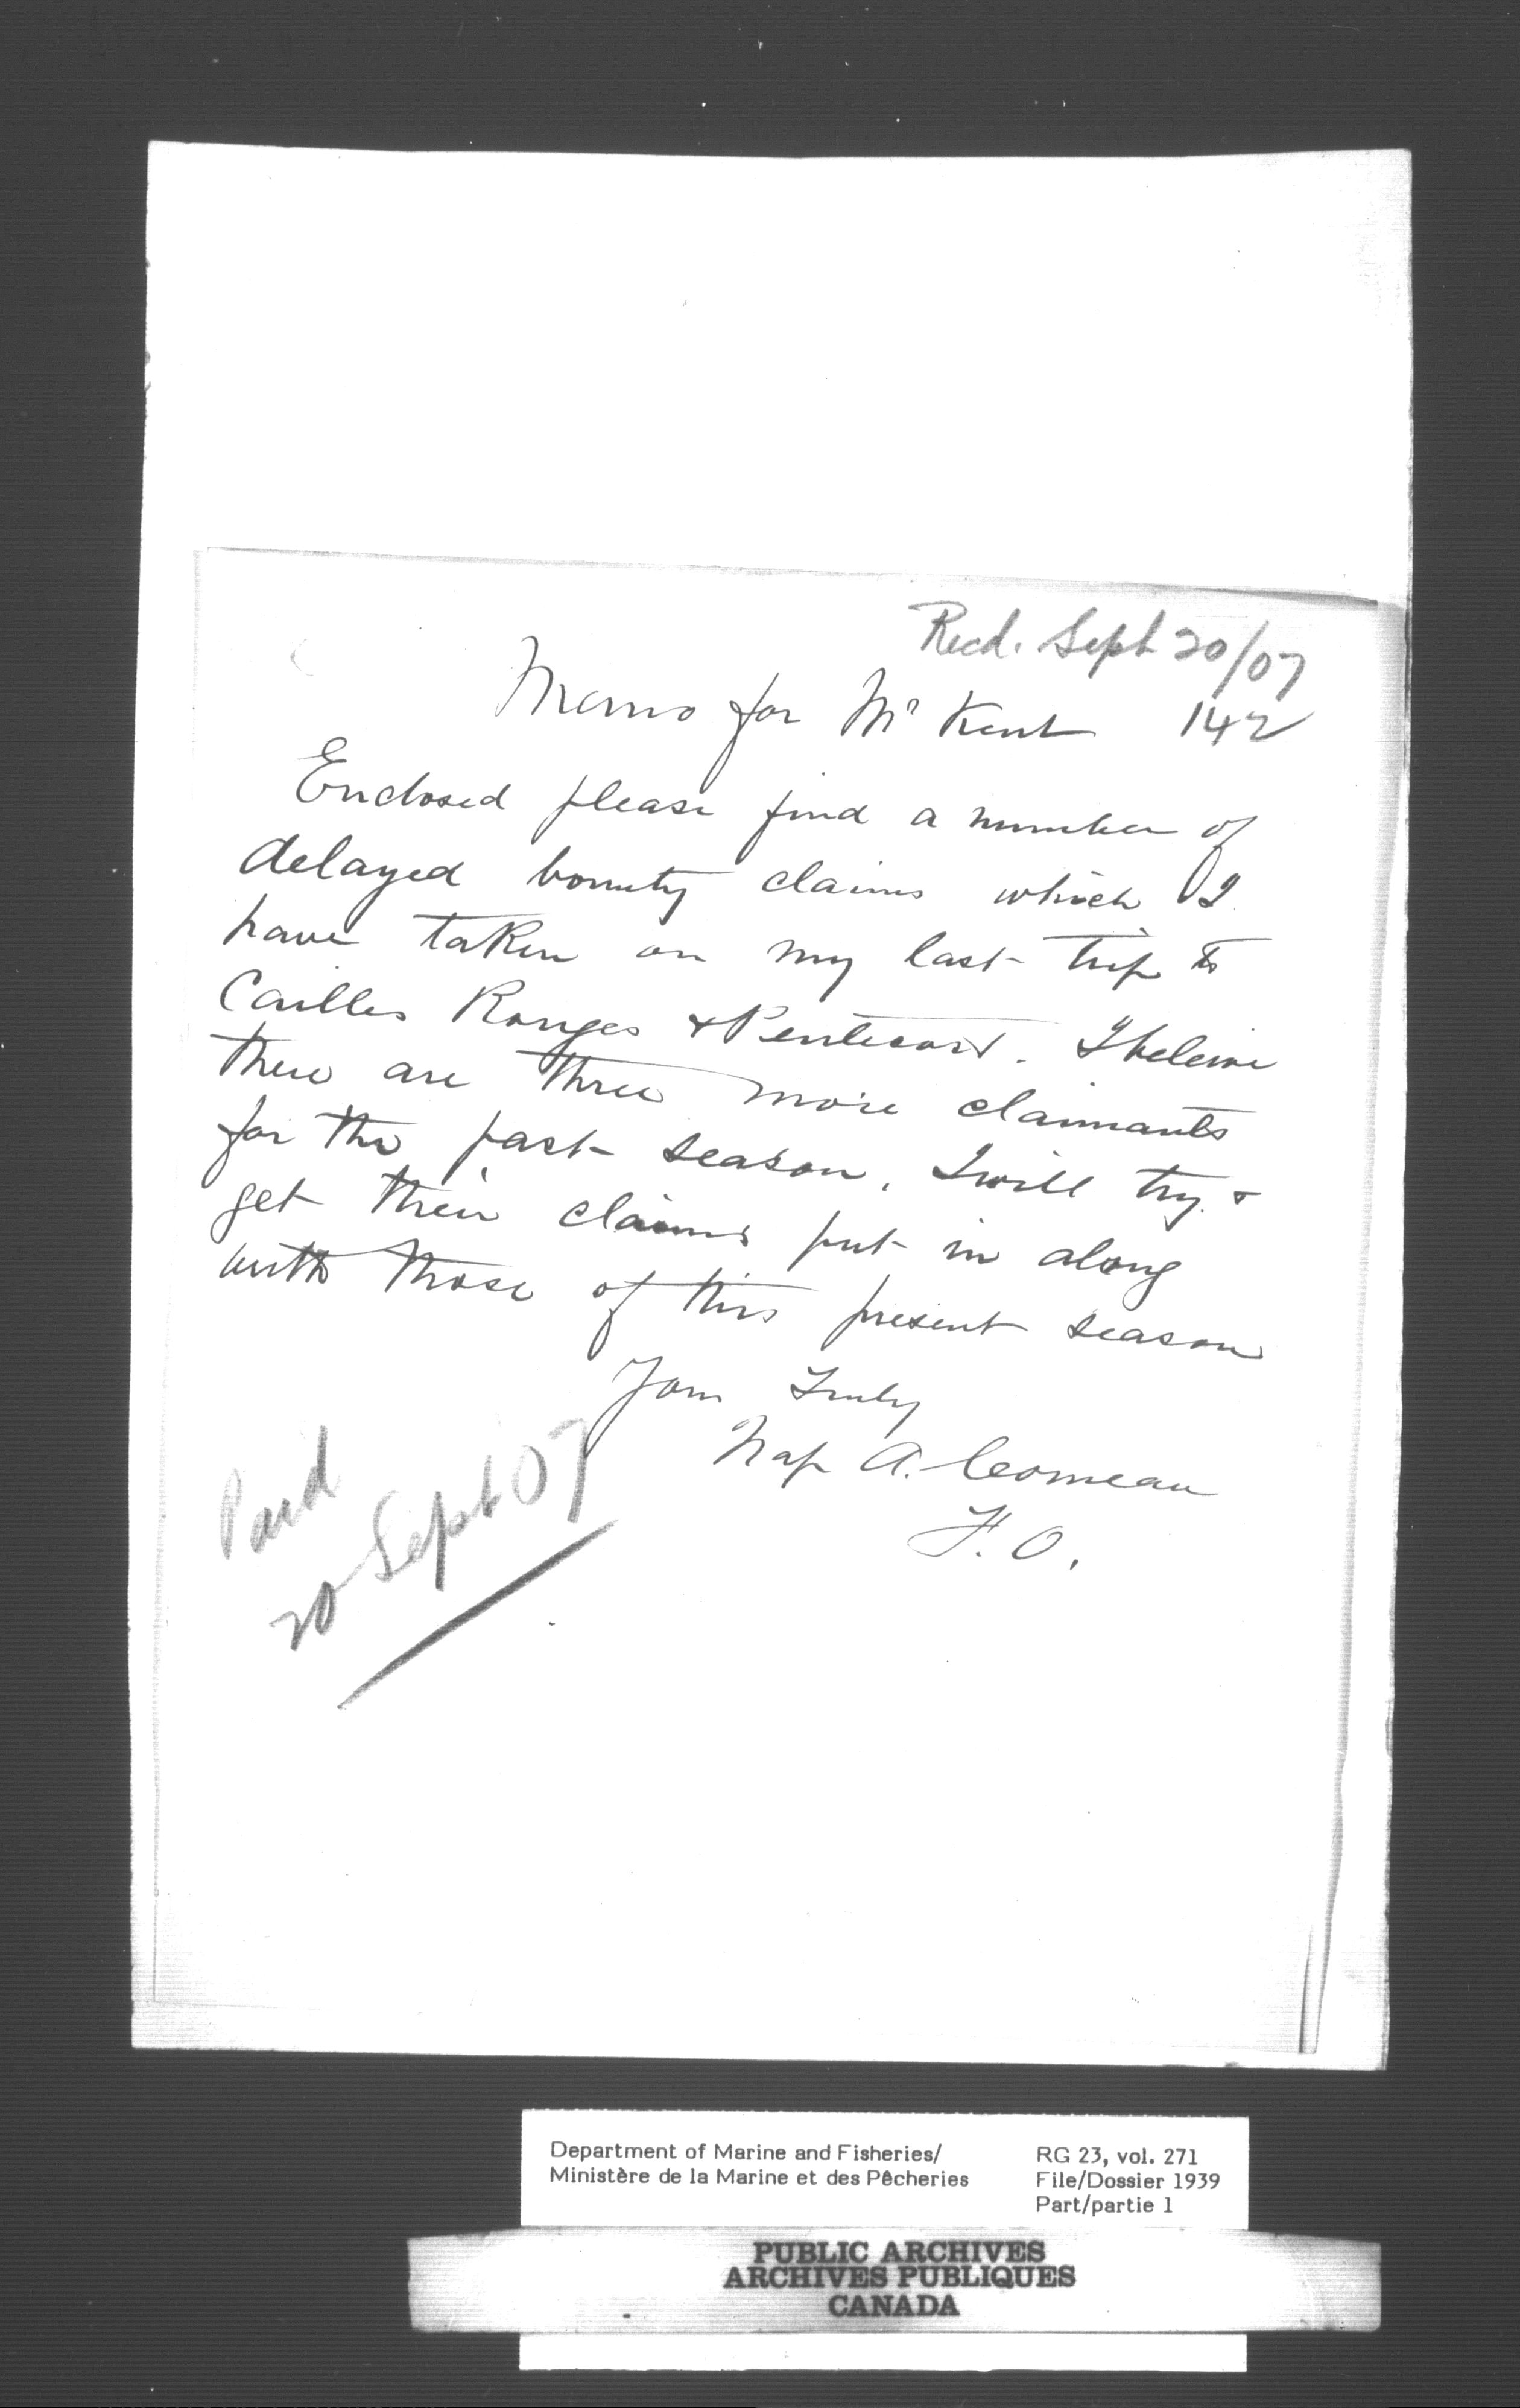 Recd. Sept 20/07
Memo for Mr Kent 142
Enclosed please find a number of
delayed bounty claims which I
have taken on my last trip to
Cailles Rouges & Pentecost. I beleive
there are three more claimants
for the past season. I will try &
get their claims put in along
with those of this present season
Yours Truly
Nap A. Comeau
F. O.
Paid
20 Sept 07
Department of Marine and Fisheries/
Ministère de la Marine et des Pêcheries
RG 23, vol. 271
File/Dossier 1939
Part/partie 1
PUBLIC ARCHIVES
ARCHIVES PUBLIQUES
CANADA